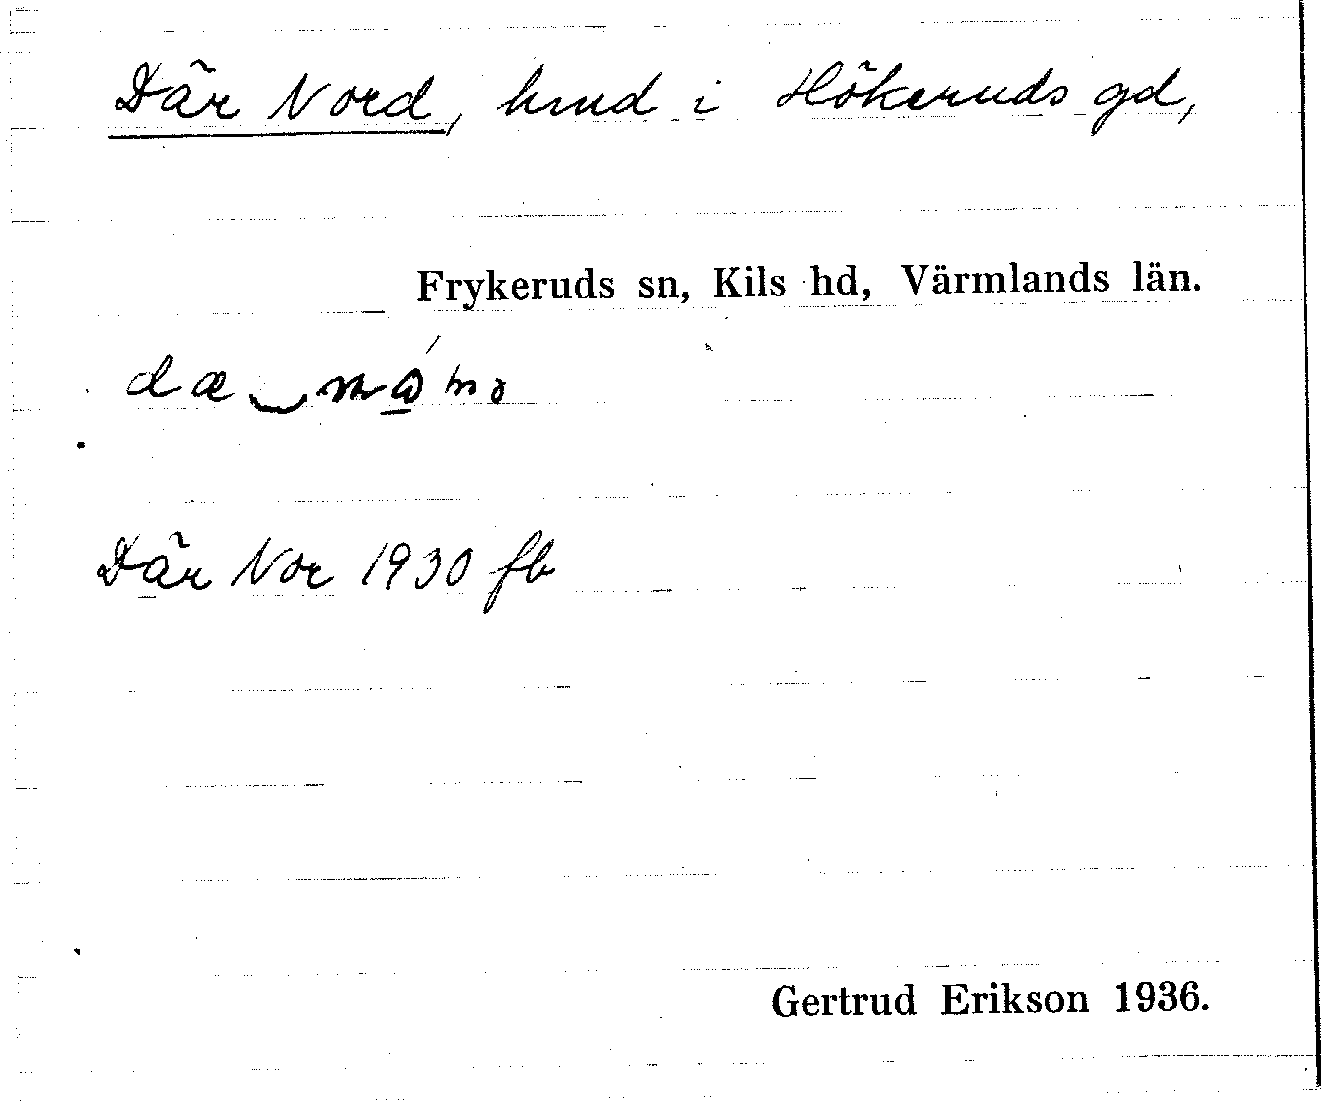 Där Nord, hmd i Hökeruds gd,
Frykeruds sn, Kils hd, Värmlands län.
Där Nor 1930 fb
Gertrud Erikson 1936.